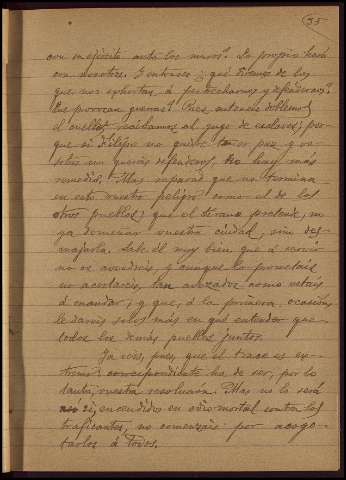 35
con ejército ante los muros? Lo propio hará
con nosotros. Y entonces ¿qué diremos de los
que nos exhortan, á pertrecharnos y defendernos?
¿Que provocan guerras? Pues, entonces doblemos
el cuello, recibamos el yugo de esclavos; por-
que si Filipo no quiere tener paz y vo-
sotros no queréis defenderos, no hay más
remedio. Mas reparad que no termina
en esto vuestro peligro como el de los
otros pueblos; que el tirano pretende, no
ya domeñar vuestra ciudad, sino des-
mojarla. Sabe él muy bien que á servir
no os avendréis y aunque lo prometáis
no acertaréis, tan avezados como estáis
á mandar; y que, á la primera ocasión,
le daréis solos más en qué entender que
todos los demás pueblos juntos.
Ya veis, pues, que el trance es ex-
tremo; correspondiente ha de ser, por lo
tanto, vuestra resolución. Mas no lo será
si, encendidos en odio mortal contra los
traficantes, no comenzáis por acogo-
tarlos á todos.